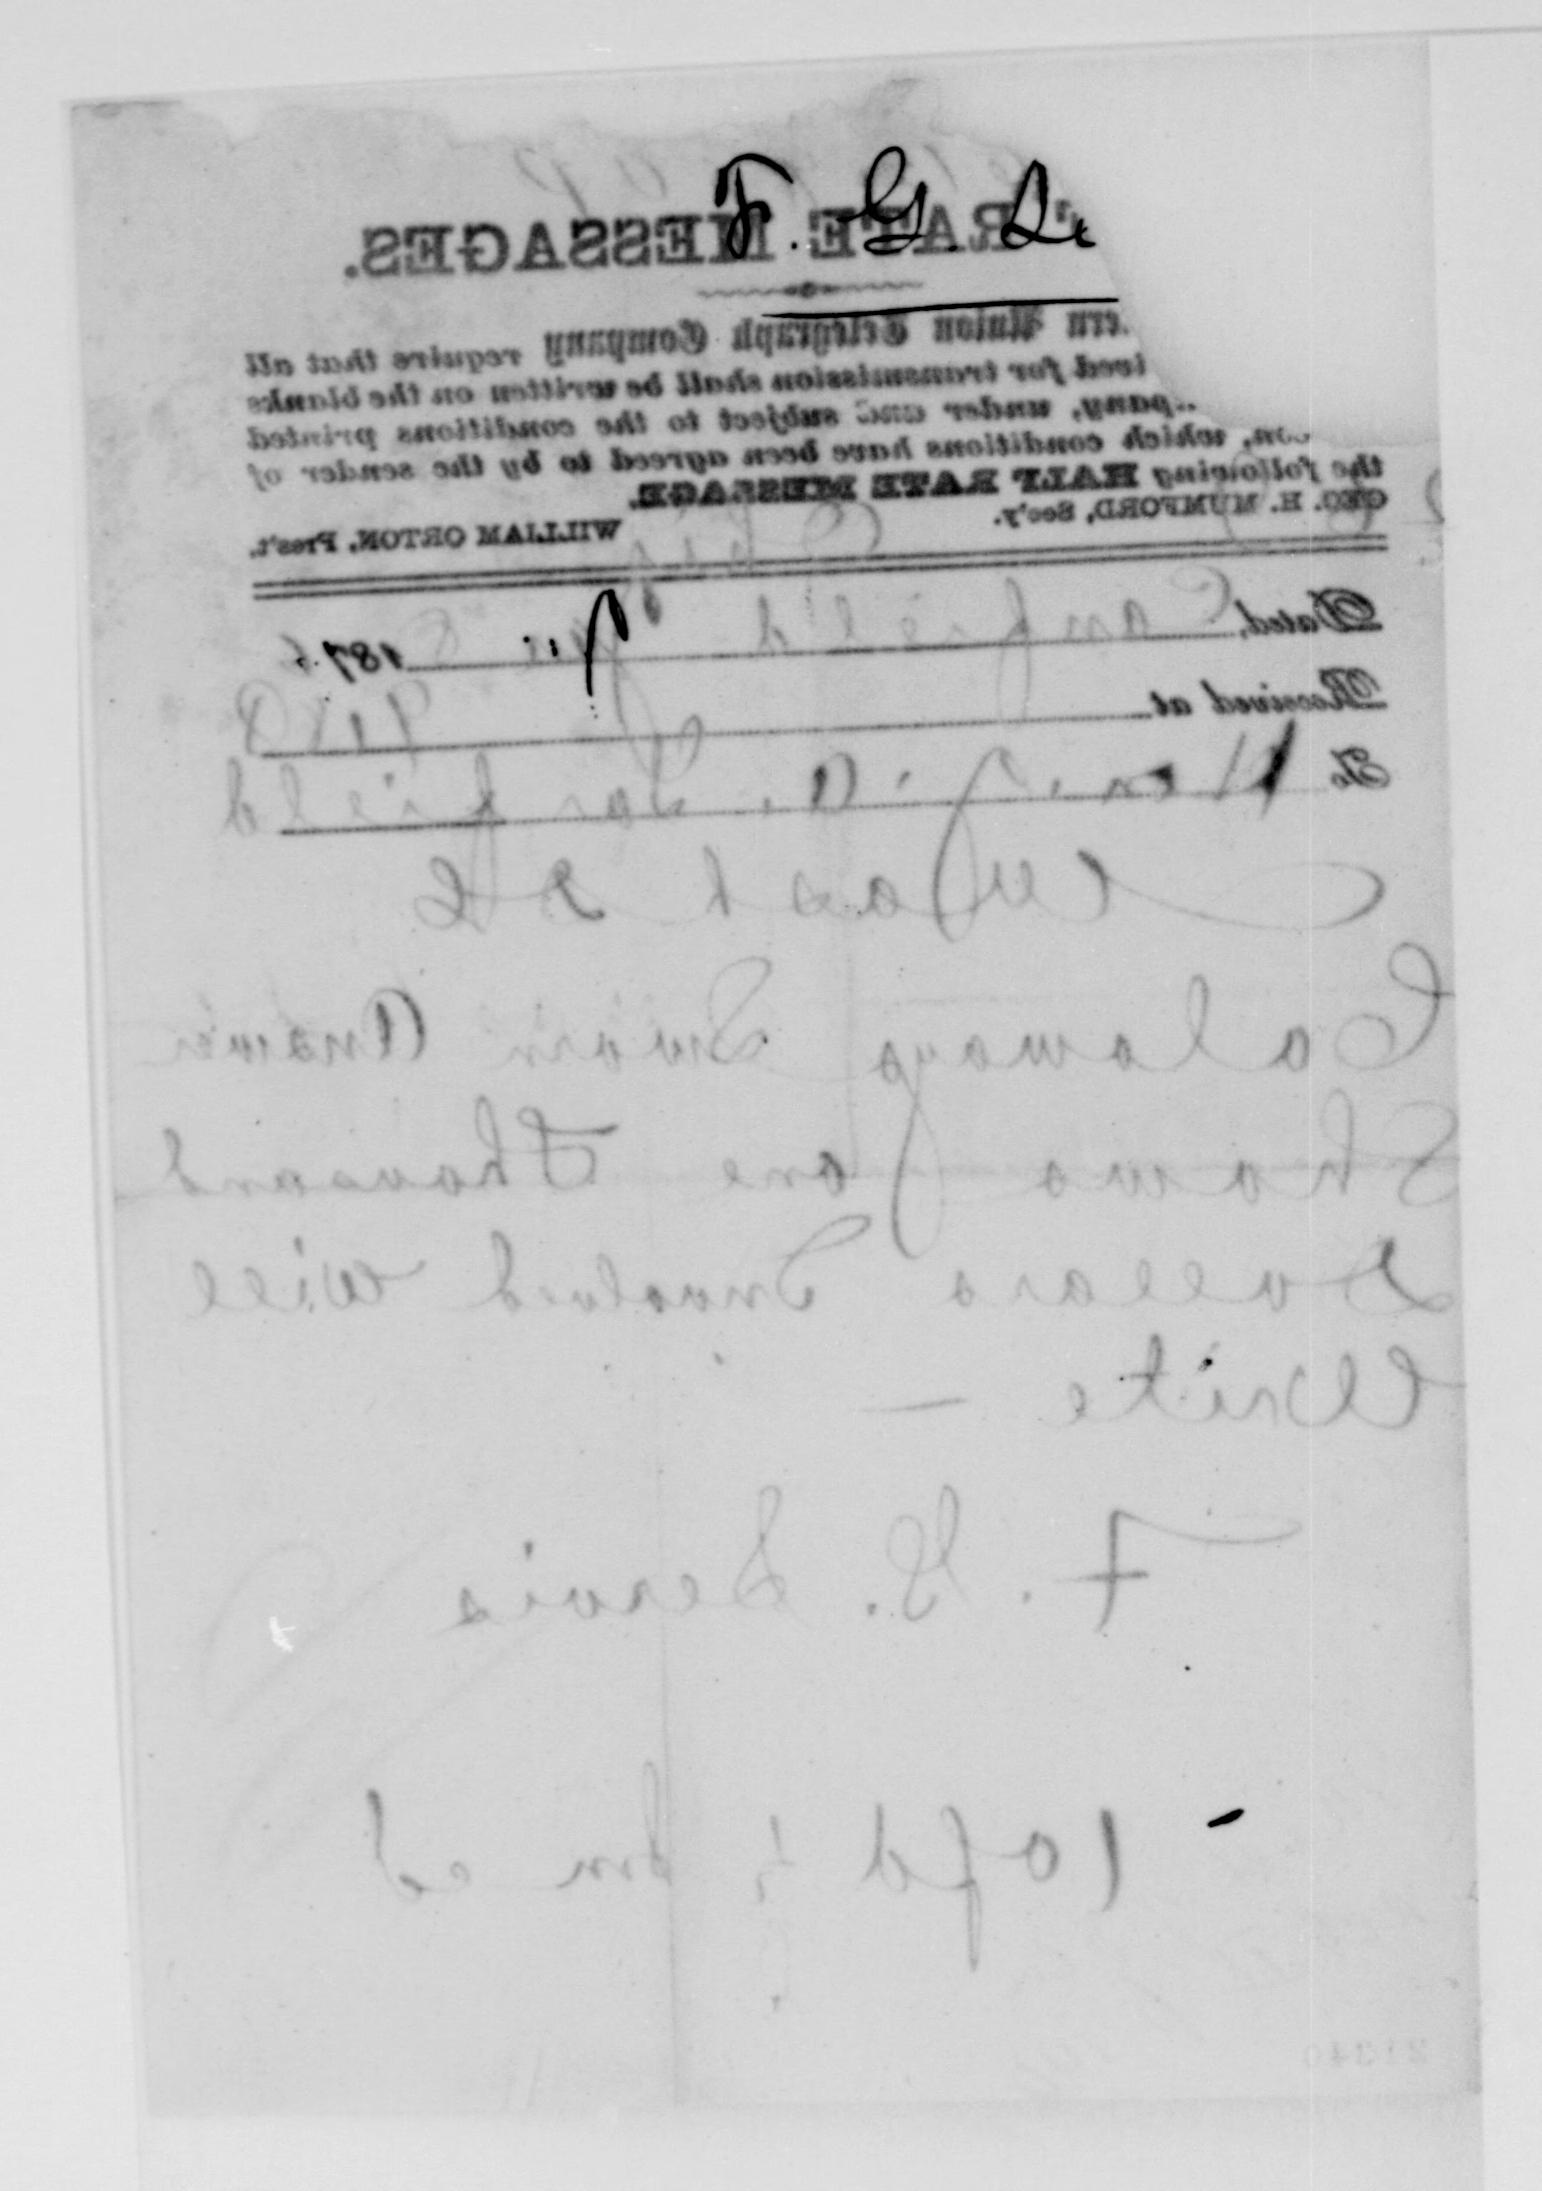 F. G. Se
RATE MESSAGES.
ern Union Telegraph Company require that all
ived for transmission shall be written on the blanks
pany, under and subject to the conditions printed
on, which conditions have been agreed to by the sender of
the following HALF RATE MESSAGE.
GEO. H. MUMFORD, Sec'y. WILLIAM ORTON, Pres't.
Dated, Canfield 187
Received at
To Hon. J. A. Garfield
Wash D C
Calaways Sworn Answer
Shows one Thousand
Dollars Involved Will
Write —
F. G. Servis
10 pd
21340